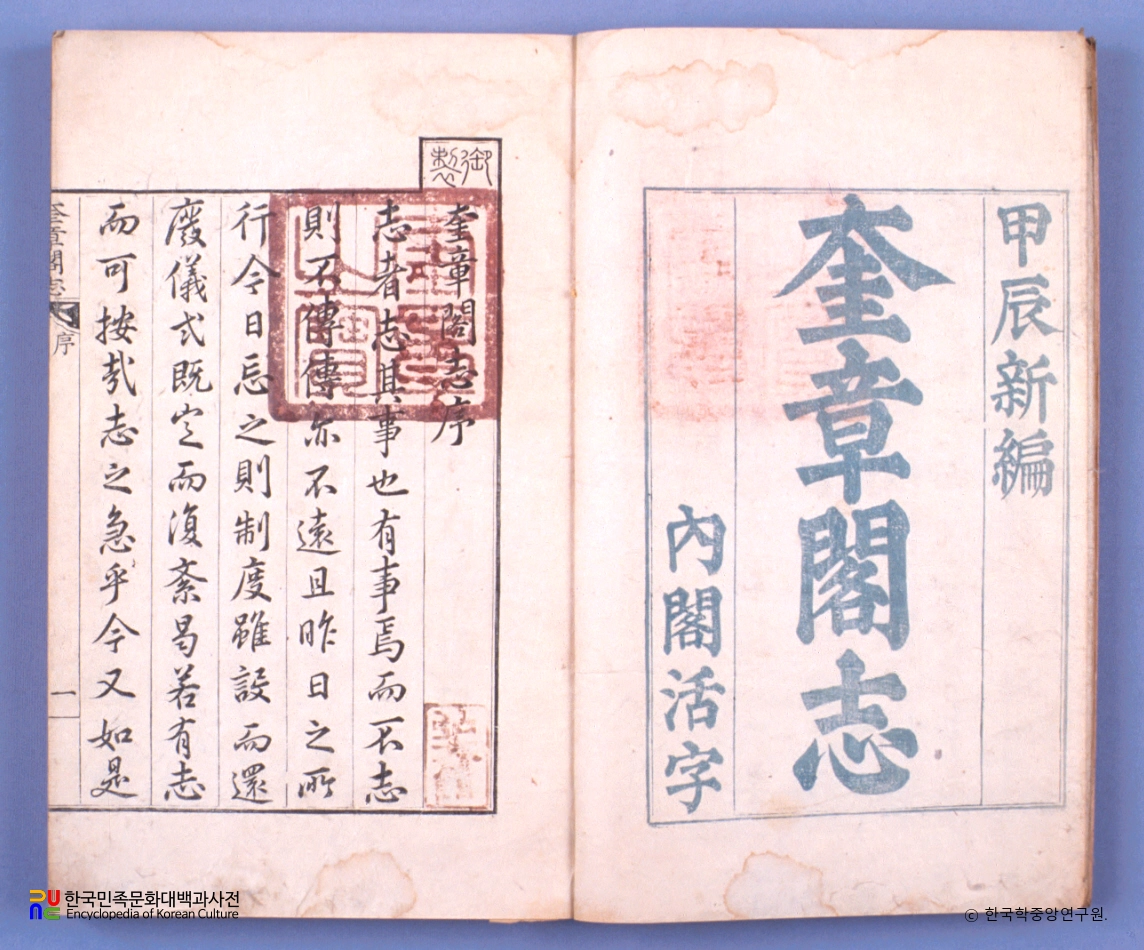 甲辰新編
奎章閣志
內閣活字
御製
奎章閣志序
志者志其事也有事焉而不志
則不傳傳亦不遠且昨日之所
行今日忘之則制度雖設而還
廢儀式既定而復紊曷若有志
而可按哉志之急乎今又如是
奎章閣志
序
一
한국민족문화대백과사전
Encyclopedia of Korean Culture
© 한국학중앙연구원.